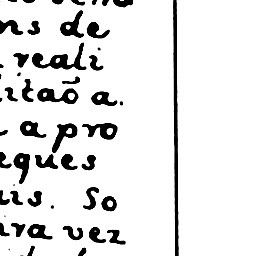 ns de
reali
litaõ a.
a pro
eques
is. So
ra vez